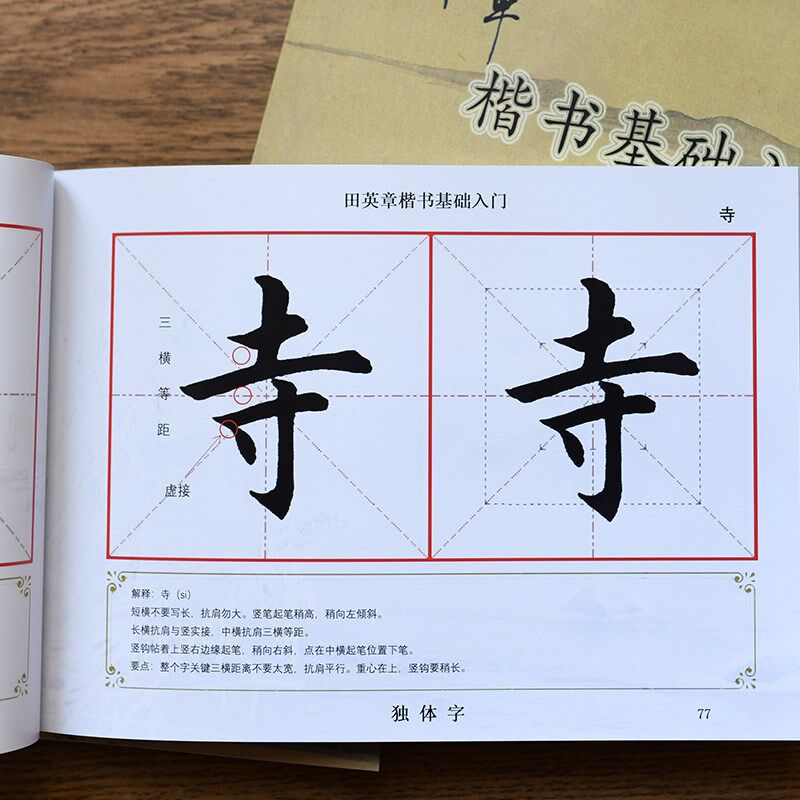 楷书基础
田英章楷书基础入门
寺
寺
寺
三横等距
虚接
解释：寺（sì）
短横不要写长，抗肩勿大。竖笔起笔稍高，稍向左倾斜。
长横抗肩与竖实接，中横抗肩三横等距。
竖钩帖着上竖右边缘起笔，稍向右斜，点在中横起笔位置下笔。
要点：整个字关键三横距离不要太宽，抗肩平行。重心在上，竖钩要稍长。
独体字
77